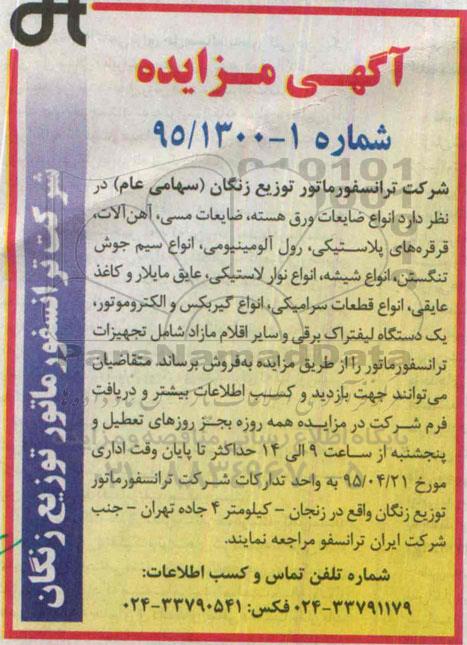 آگهی مزایده
شماره ۱-۹۵/۱۳۰۰
شرکت ترانسفورماتور توزیع زنگان (سهامی عام) در
نظر دارد انواع ضایعات ورق هسته، ضایعات مسی، آهن‌آلات،
قرقره‌های پلاستیکی، رول آلومینیومی، انواع سیم جوش
تنگستن، انواع شیشه، انواع نوار لاستیکی، عایق مایلار و کاغذ
عایقی، انواع قطعات سرامیکی، انواع گیربکس و الکتروموتور،
یک دستگاه لیفتراک برقی و سایر اقلام مازاد شامل تجهیزات
ترانسفورماتور را از طریق مزایده به‌فروش برساند. متقاضیان
می‌توانند جهت بازدید و کسب اطلاعات بیشتر و دریافت
فرم شرکت در مزایده همه روزه بجز روزهای تعطیل و
پنجشنبه از ساعت ۹ الی ۱۴ حداکثر تا پایان وقت اداری
مورخ ۹۵/۰۴/۲۱ به واحد تدارکات شرکت ترانسفورماتور
توزیع زنگان واقع در زنجان - کیلومتر ۴ جاده تهران - جنب
شرکت ایران ترانسفو مراجعه نمایند.
شماره تلفن تماس و کسب اطلاعات:
۰۲۴-۳۳۷۹۱۱۷۹ فکس: ۰۲۴-۳۳۷۹۰۵۴۱
شرکت ترانسفورماتور توزیع زنگان
ParsNamadData
پایگاه اطلاع رسانی مناقصه و مزایده